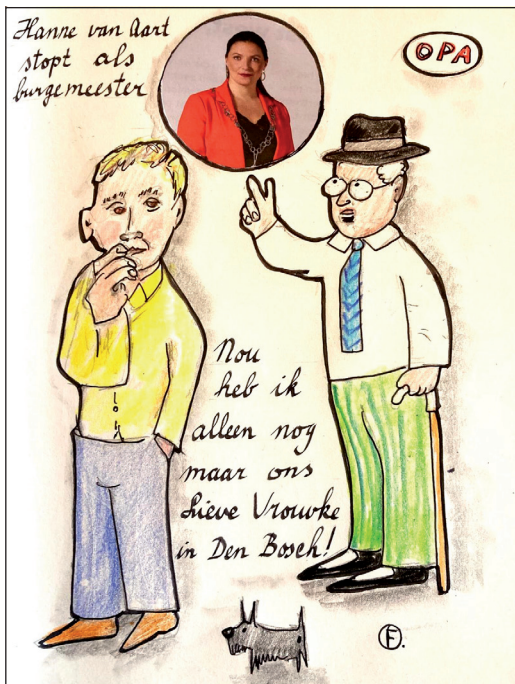 Hanne van Aart
stopt als
burgemeester
OPA
Nou
heb ik
alleen nog
maar ons
Lieve Vrouwke
in Den Bosch!
F.